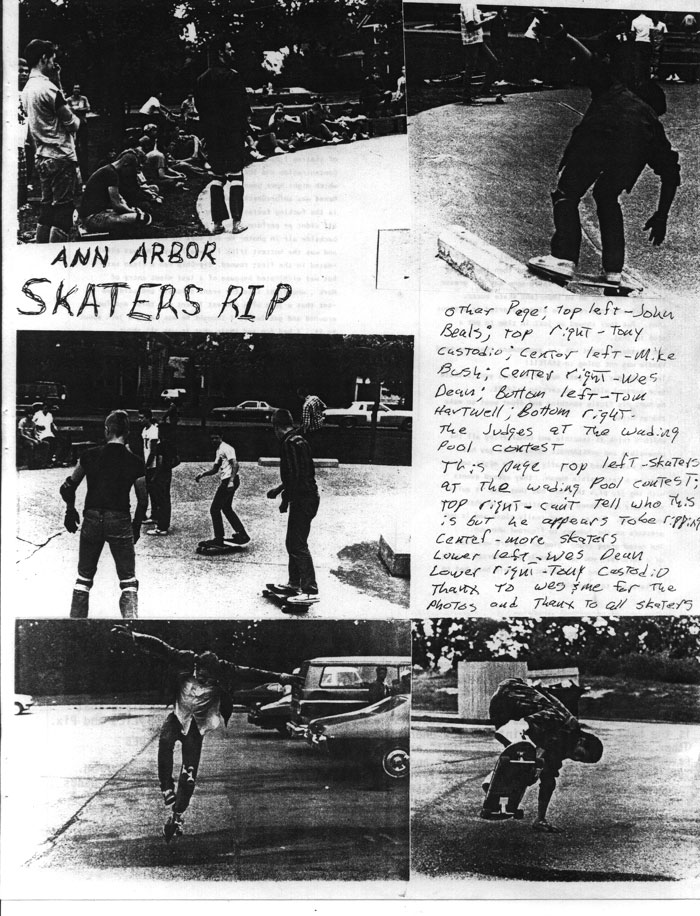 ANN ARBOR
SKATERS RIP
other Page; top left-John
Beals; top right-Tony
Custodio; Center left-Mike
Bush; Center right-Wes
Dean; Bottom left-Tom
Hartwell; Bottom right-
The Judges at The wading
Pool contest
This page top left-skaters
at the wading Pool contest;
top right-can't tell who this
is but he appears to be ripping
Center-more skaters
Lower left-Wes Dean
Lower right-Tony Custodio
Thanx to wes &me for the
photos and Thanx to all skaters